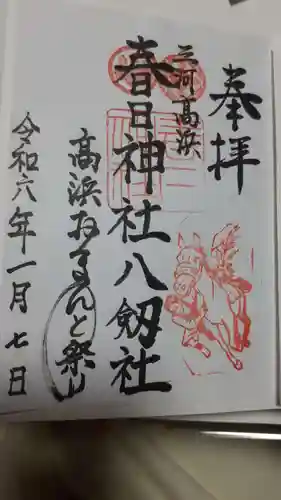 奉拝
三河高浜
春日神社八剱社
高浜おまんと祭り
令和六年一月七日